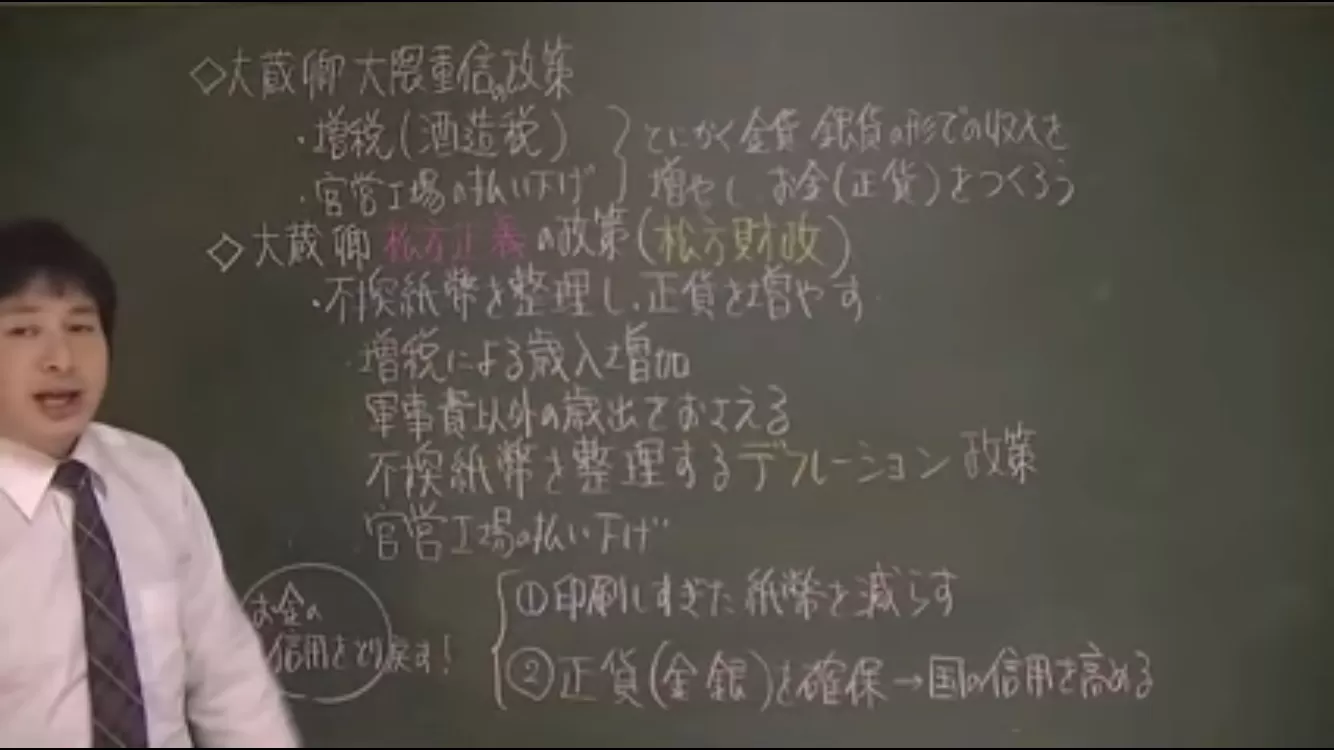 ◇大蔵卿 大隈重信の政策
・増税(酒造税)
・官営工場の払い下げ
とにかく金貨 銀貨の形での収入を
増やし、お金(正貨)をつくろう
◇大蔵卿 松方正義の政策(松方財政)
・不換紙幣を整理し、正貨を増やす
増税による歳入増加
軍事費以外の歳出をおさえる
不換紙幣を整理するデフレーション政策
官営工場の払い下げ
お金の
信用をとり戻す!
①印刷しすぎた紙幣を減らす
②正貨(金銀)を確保→国の信用を高める